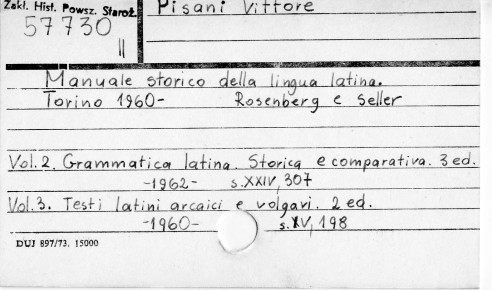 Zakł. Hist. Powsz. Staroż.
Pisani Vittore
57730
II
Manuale storico della lingua latina.
Torino 1960- Rosenberg e Seller
Vol. 2. Grammatica latina. Storica e comparativa. 3 ed.
-1962- s. XXIV, 307
Vol. 3. Testi latini arcaici e volgari. 2 ed.
-1960- s. XV, 198
DUJ 897/73. 15000